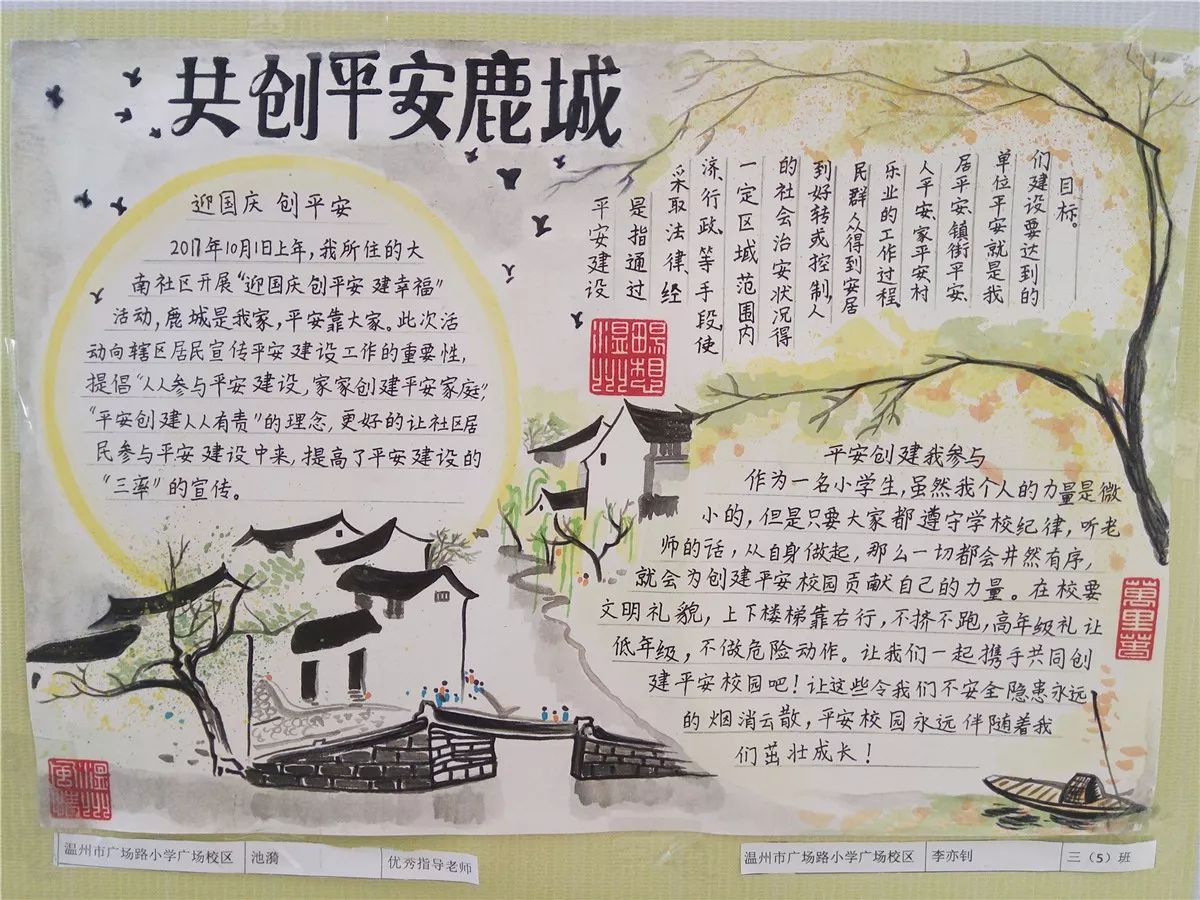 共创平安鹿城
迎国庆 创平安
2017年10月1日上午,我所住的大
南社区开展“迎国庆创平安 建幸福”
活动,鹿城是我家,平安靠大家。此次活
动向辖区居民宣传平安建设工作的重要性,
提倡“人人参与平安建设,家家创建平安家庭”,
“平安创建人人有责”的理念,更好的让社区居
民参与平安建设中来,提高了平安建设的
“三率”的宣传。
平安建设
是指通过
采取法律、经
济、行政、等手段,使
一定区域范围内
的社会治安状况得
到好转或控制,人
民群众得到安居
乐业的工作过程.
人平安、家平安、村
居平安、镇街平安、
单位平安就是我
们建设要达到的
目标。
平安创建我参与
作为一名小学生,虽然我个人的力量是微
小的,但是只要大家都遵守学校纪律,听老
师的话,从自身做起,那么一切都会井然有序,
就会为创建平安校园贡献自己的力量。在校要
文明礼貌,上下楼梯靠右行,不挤不跑,高年级礼让
低年级,不做危险动作。让我们一起携手共同创
建平安校园吧!让这些令我们不安全隐患永远
的烟消云散,平安校园永远伴随着我
们茁壮成长!
温州市广场路小学广场校区 池漪 优秀指导老师
温州市广场路小学广场校区 李亦钊 三(5)班